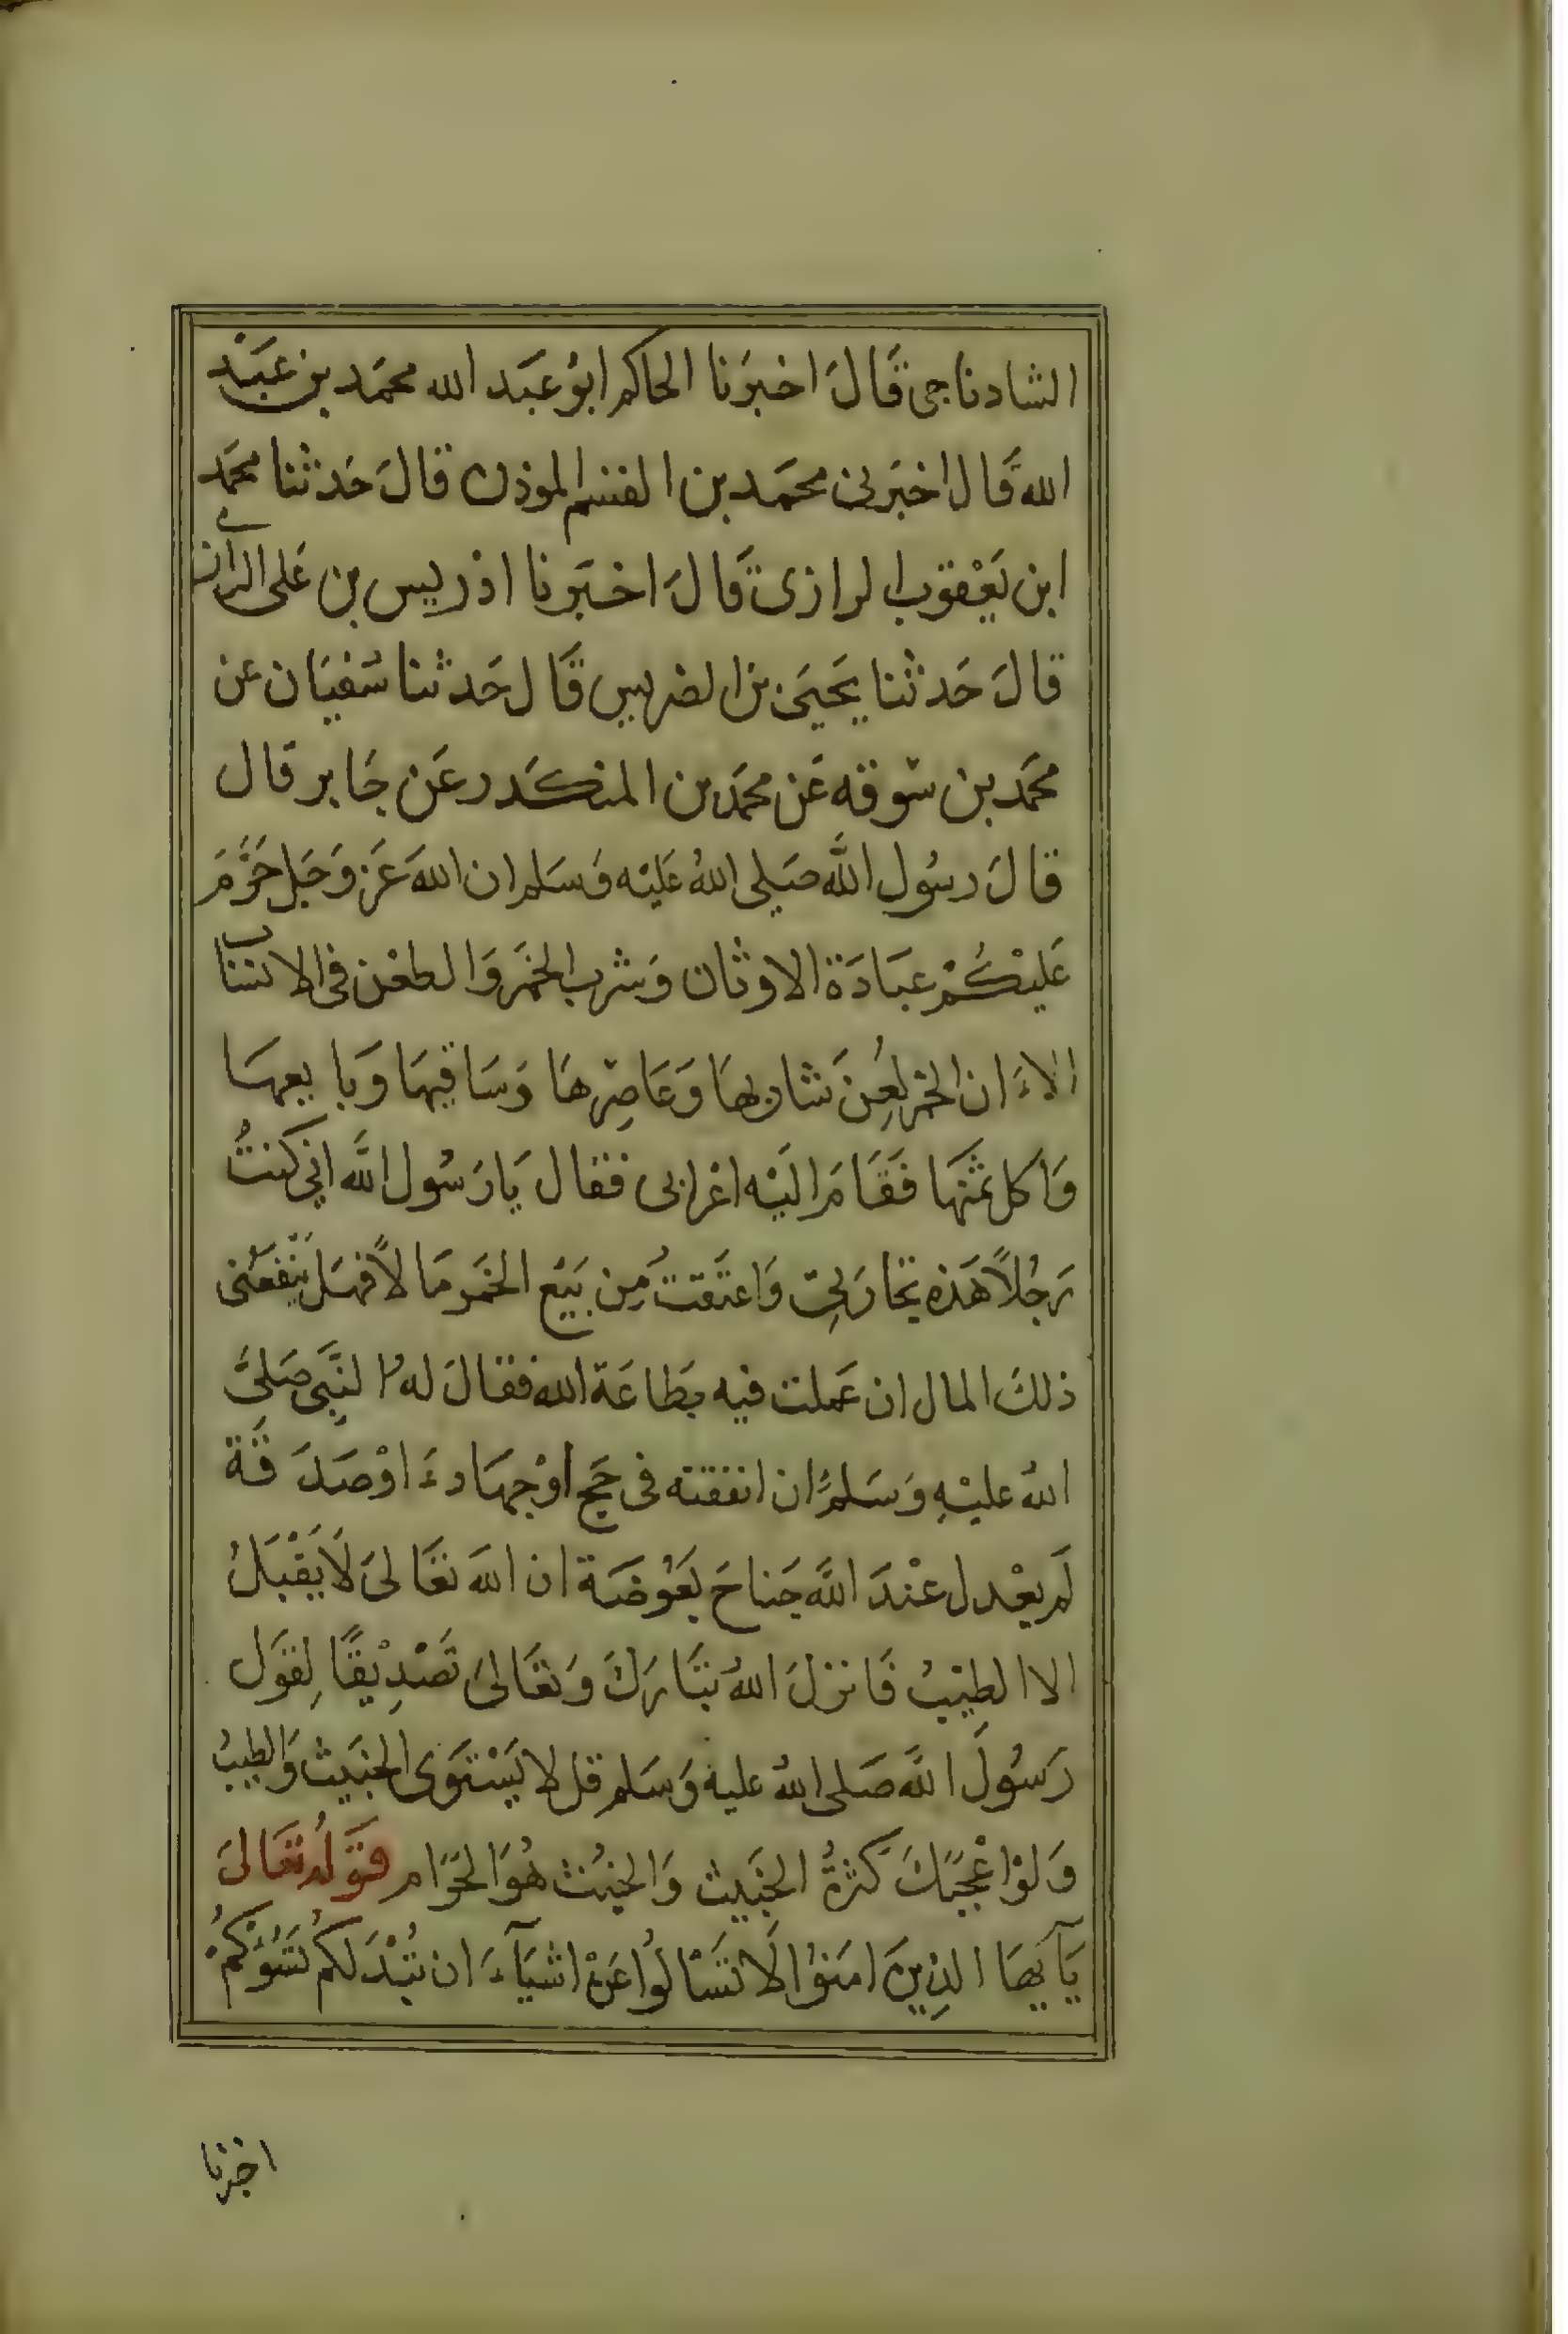 الشادناجى قَالَ اخبرَنا الحاكم ابوُ عبَد الله محمَد بن عَبَد
الله قَال اخبَرنى محمَد بن القسم الموذن قالَ حَدثنا محمَد
ابن يَعْقوب الرازى قَالَ اخبَرنا ادْريس بن عَلى الرازى
قالَ حَدثنا يَحيَى بن الضريس قَال حَدثنا سُفيَان عن
محَمد بن سوقه عَن محمَد بن المنكَدر عَن جَابر قال
قالَ رسُول اللَّه صَلى اللهُ عَليْه وَسَلم ان اللهَ عَز وَجَل حَرَّمَ
عَليْكُمْ عبَادَة الاوثان وَشرب الخمَر وَالطعْن فى الانسَاب
الاءَ ان الخمر لُعِنَ شاربهَا وَعَاصِرهَا وَسَاقيهَا وَبايعهَا
وَاكل ثمَنهَا فَقَامَ اليَْه اعْرابى فقال يَا رَسُول اللَّه انى كنتُ
رَجُلاً هَذه تجارَتى وَاعتَقتُ مِن بَيَع الخمَر مَالاً فهَل يَنْفعَنى
ذلكَ المال ان عَملت فيه بطَاعَة الله فقالَ لهُ النَبِى صَلىَّ
اللهُ عليْهِ وَسَلمَّ ان انفقته فى حَج اوْ جهَادءَ اوْ صَدَقَة
لَم يعْدل عنْدَ اللَّه جَناحَ بَعُوضَة ان اللهَ تعَالىَ لَا يَقْبَلُ
الا الطيَبُ فَانزلَ اللهُ تبَاركَ وَتعَالىَ تَصْدِيْقًا لِقوَل
رَسُولَ اللَّه صَلى اللهُ عليهْ وَسَلم قل لا يَسْتَوى الخبَيث وَالطيبُ
وَلوْ اعْجَبَكَ كَثرةُ الخَبَيث وَالخبُث هُوَ الحَرَام قوَلهُ تعَالىَ
يَآ يَهَا الذِينَ امَنوُا لَا تَسْالوُا عَنْ اشيَآءَ ان تُبْدَ لَكُم تَسُؤكُمْ
اخبرنا